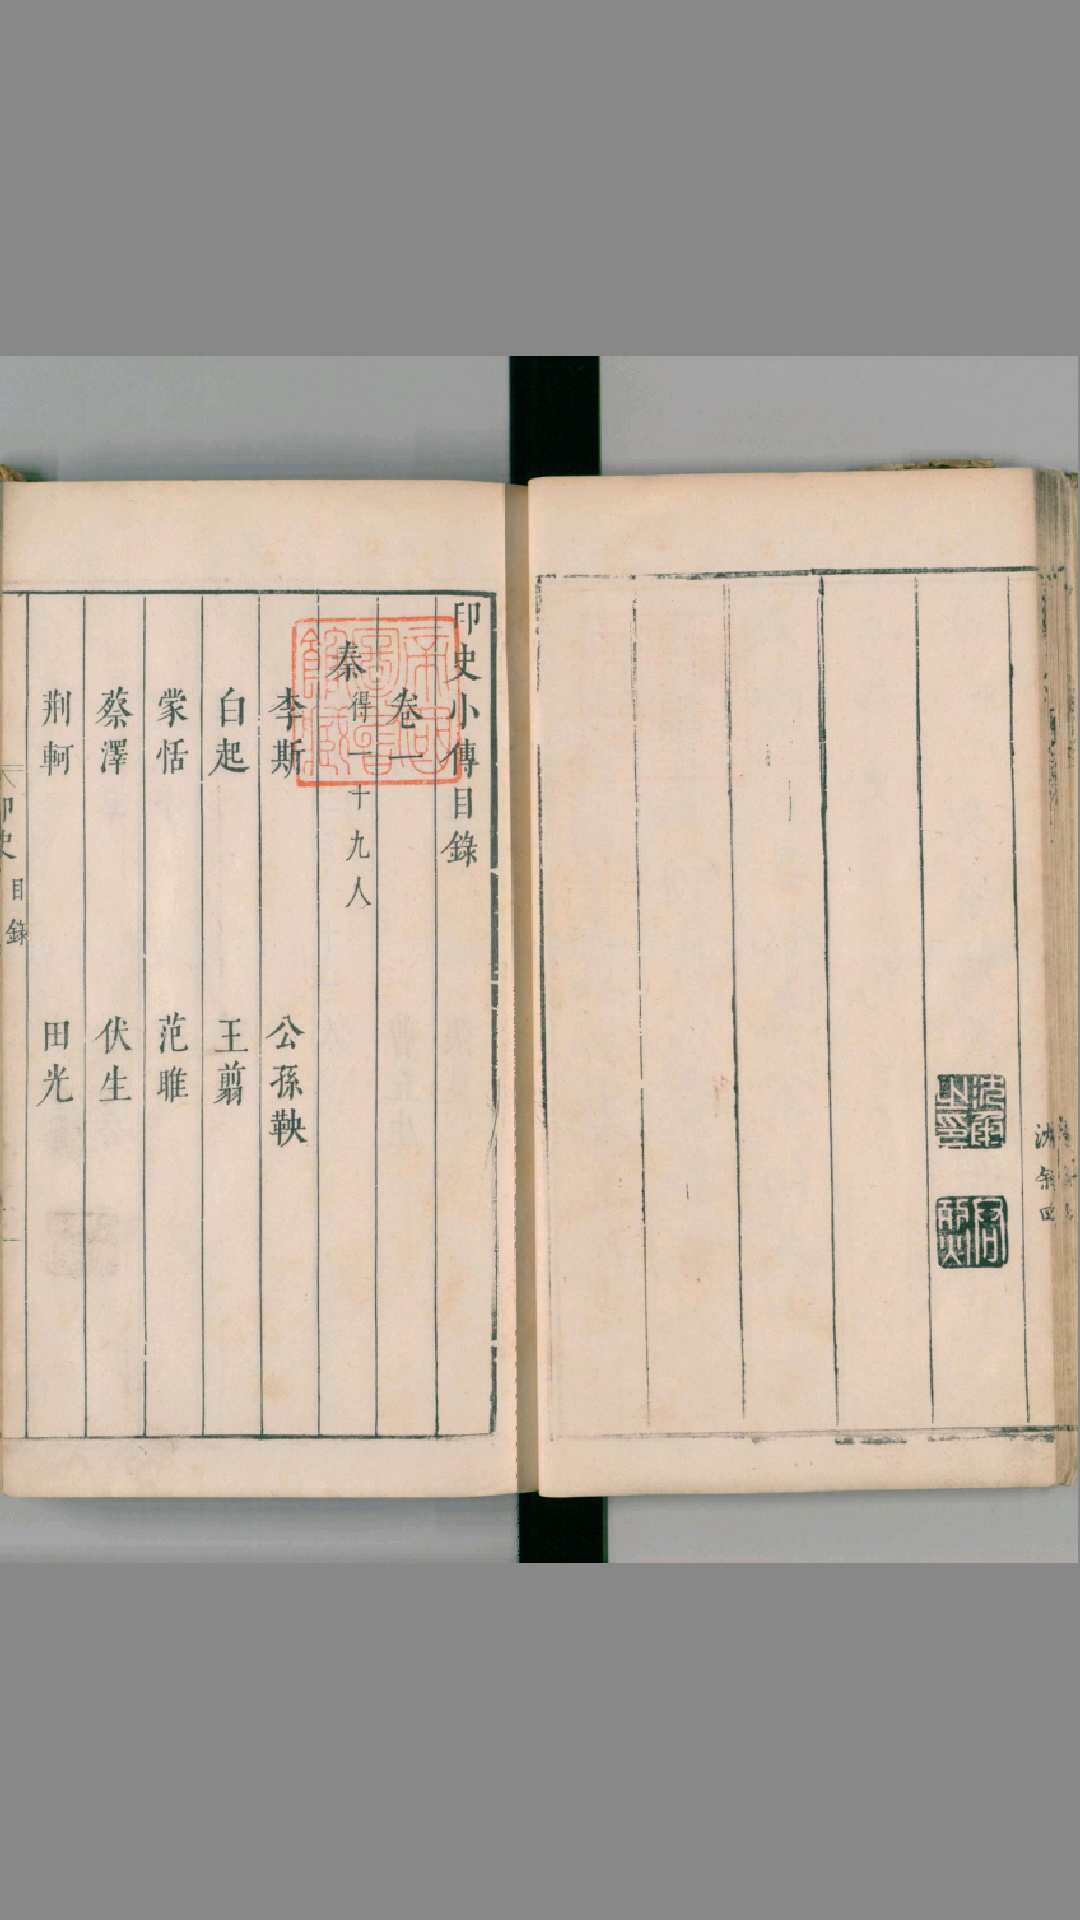 印史小傳目錄
卷一
秦 得一十九人
李斯 公孫鞅
白起 王翦
蒙恬 范雎
蔡澤 伏生
荆軻 田光
印史 目錄
帝國圖書館藏